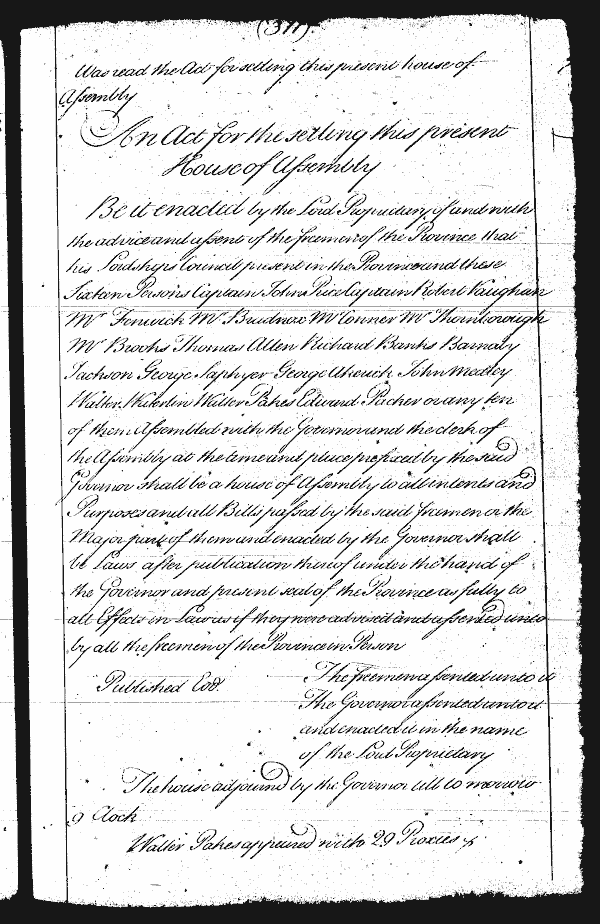 (377)
Was read the Act for setling this present house of
Assembly
An Act for the setling this present
House of Assembly
Be it enacted by the Lord Proprietary of and with
the advice and assent of the freemen of the Province that
his Lordships Council present in the Province and these
Sixteen Persons Captain John Price Captain Robert Vaughan
Mr Fenwick Mr Brudnox Mr Conner Mr Thornborough
Mr Brooks Thomas Allen Richard Banks Barnaby
Jackson George Saphyer George Akerick John Medley
Walter Waterlin Walter Pakes Edward Packer or any ten
of them Assembled with the Governor and the clerk of
the Assembly at the time and place prefixed by the said
Governor shall be a house of Assembly to all intents and
Purposes and all Bills passed by the said freemen or the
Major part of them and enacted by the Governor shall
be Laws after publication thereof under the hand of
the Governor and present seal of the Province as fully to
all Effects in Law as if they were advised and assented unto
by all the freemen of the Province in Person
Published Eod.
The freemen assented unto it
The Governor assented unto it
and enacted it in the name
of the Lord Proprietary
The house adjourned by the Governor till to morrow
9 Clock
Walter Pakes appeared with 29 Proxies